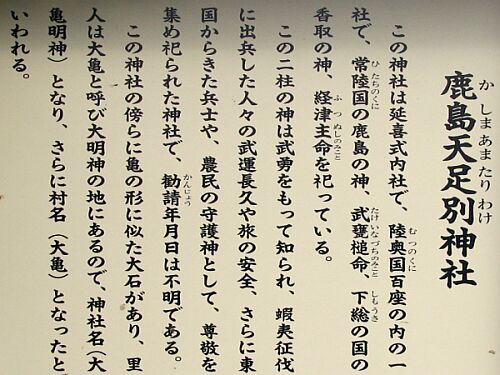 か しま あま たり わけ
鹿島天足別神社
むつのくに
この神社は延喜式内社で、陸奥国百座の内の一
ひたちのくに たけいなづちのみこと しもうさ
社で、常陸国の鹿島の神、武甕槌命、下総の国の
ふつぬしのみこと
香取の神、経津主命を祀っている。
この二柱の神は武勇をもって知られ、蝦夷征伐
に出兵した人々の武運長久や旅の安全、さらに東
国からきた兵士や、農民の守護神として、尊敬を
かんじょう
集め祀られた神社で、勧請年月日は不明である。
この神社の傍らに亀の形に似た大石があり、里
人は大亀と呼び大明神の地にあるので、神社名（大
亀明神）となり、さらに村名（大亀）となったと
いわれる。